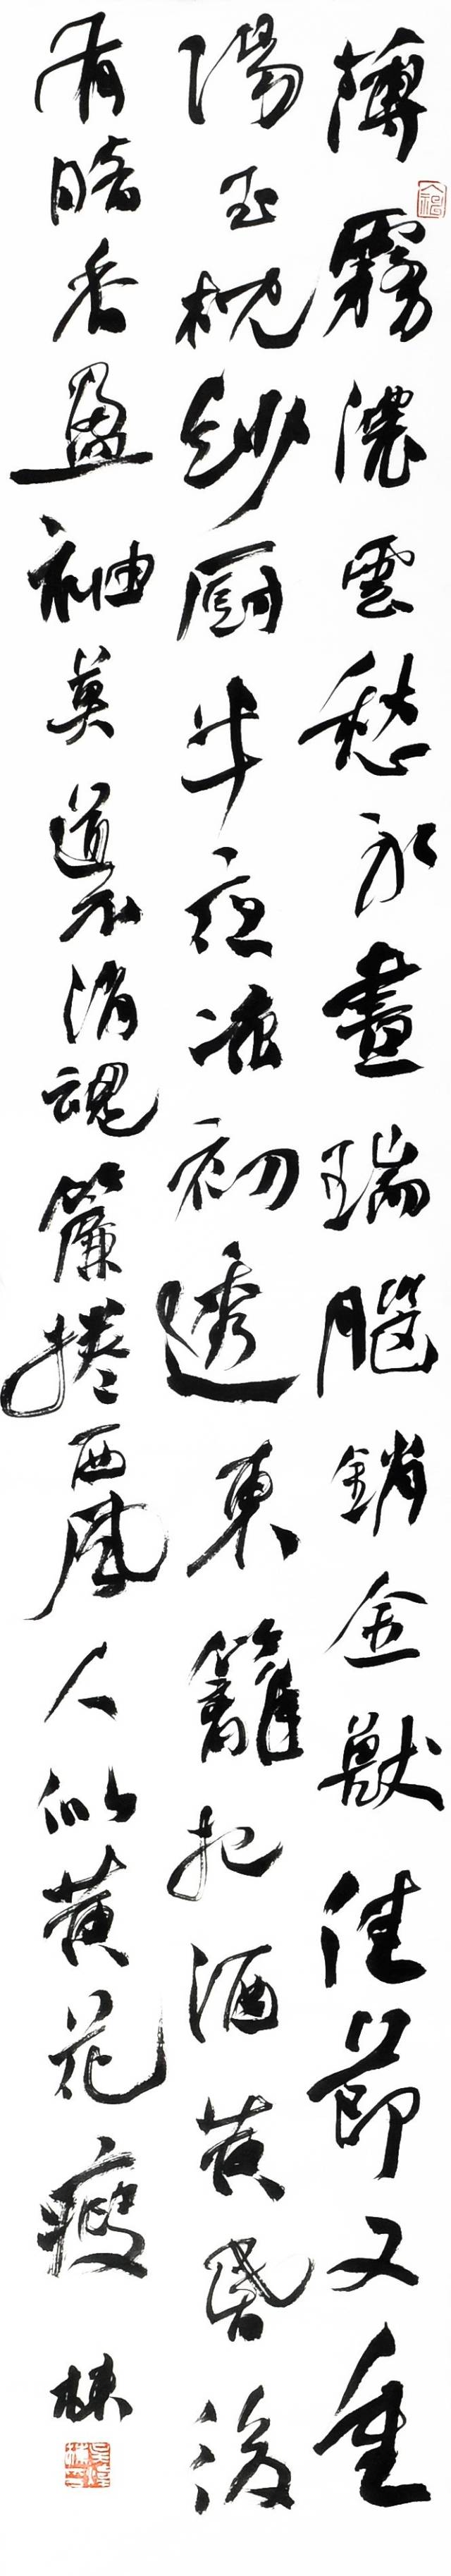 薄霧濃雲愁永晝瑞腦銷金獸佳節又重
陽玉枕紗厨半夜涼初透東籬把酒黃昏後
有暗香盈袖莫道不消魂簾捲西風人似黃花瘦
棟